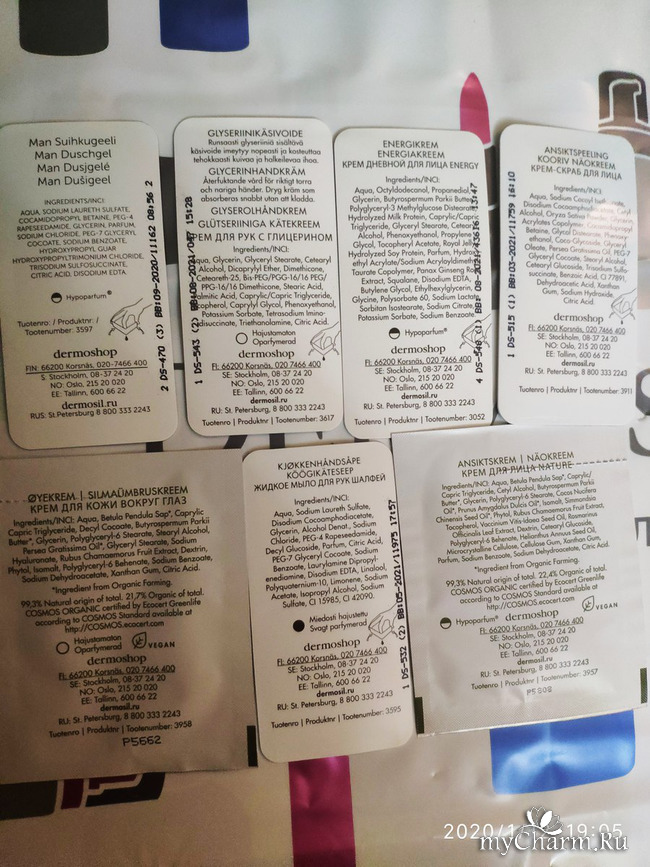 Man Suihkugeeli
Man Duschgel
Man Dusjgelé
Man Dušigeel
INGREDIENTS/INCI:
AQUA, SODIUM LAURETH SULFATE,
COCAMIDOPROPYL BETAINE, PEG-4
RAPESEEDAMIDE, GLYCERIN, PARFUM,
SODIUM CHLORIDE, PEG-7 GLYCERYL
COCOATE, SODIUM BENZOATE,
HYDROXYPROPYL GUAR
HYDROXYPROPYLTRIMONIUM CHLORIDE,
TRISODIUM SULFOSUCCINATE,
CITRIC ACID, DISODIUM EDTA.
Hypoparfum®
Tuotenro: / Produktnr: /
Tootenumber: 3597
dermoshop
FIN: 66200 Korsnäs, 020-7466 400
S: Stockholm, 08-37 24 20
NO: Oslo, 215 20 020
EE: Tallinn, 600 66 22
dermosil.ru
RUS: St.Petersburg 8 800 333 2243
2 DS-470 (3) BB:09-2020/11162 08:56 2
GLYSERIINIKÄSIVOIDE
Runsaasti glyseriiniä sisältävä
käsivoide imeytyy nopeasti ja kosteuttaa
tehokkaasti kuivaa ja halkeilevaa ihoa.
GLYCERINHANDKRÄM
Återfuktande vård för riktigt torra
och nariga händer. Dryg kräm som
absorberas snabbt utan att kladda.
GLYSEROLHÅNDKREM
GLÜTSERIINIGA KÄTEKREEM
КРЕМ ДЛЯ РУК С ГЛИЦЕРИНОМ
Ingredients/INCI:
Aqua, Glycerin, Glyceryl Stearate, Cetearyl
Alcohol, Dicaprylyl Ether, Dimethicone,
Ceteareth-25, Bis-PEG/PPG-16/16 PEG/
PPG-16/16 Dimethicone, Stearic Acid,
Palmitic Acid, Caprylic/Capric Triglyceride,
Tocopherol, Caprylyl Glycol, Phenoxyethanol,
Potassium Sorbate, Tetrasodium Imino-
disuccinate, Triethanolamine, Citric Acid.
Hajustamaton
Oparfymerad
dermoshop
FI: 66200 Korsnäs, 020 7466 400
SE: Stockholm, 08-37 24 20
NO: Oslo, 215 20 020
EE: Tallinn, 600 66 22
dermosil.ru
RU: St. Petersburg 8 800 333 2243
Tuotenro | Produktnr | Tootenumber: 3617
1 DS-543 (2) 15:28
ENERGIKREM
ENERGIAKREEM
КРЕМ ДНЕВНОЙ ДЛЯ ЛИЦА ENERGY
Ingredients/INCI:
Aqua, Octyldodecanol, Propanediol,
Glycerin, Butyrospermum Parkii Butter,
Polyglyceryl-3 Methylglucose Distearate,
Hydrolyzed Milk Protein, Caprylic/Capric
Triglyceride, Glyceryl Stearate, Cetearyl
Alcohol, Phenoxyethanol, Propylene
Glycol, Tocopheryl Acetate, Royal Jelly,
Hydrolyzed Soy Protein, Parfum, Hydroxy-
ethyl Acrylate/Sodium Acryloyldimethyl
Taurate Copolymer, Panax Ginseng Root
Extract, Squalane, Disodium EDTA,
Butylene Glycol, Ethylhexylglycerin,
Glycine, Polysorbate 60, Sodium Lactate,
Sorbitan Isostearate, Sodium Citrate,
Potassium Sorbate, Sodium Benzoate.
Hypoparfum®
dermoshop
FI: 66200 Korsnäs, 020 7466 400
SE: Stockholm, 08-37 24 20
NO: Oslo, 215 20 020
EE: Tallinn, 600 66 22
dermosil.ru
RU: St. Petersburg, 8 800 333 2243
Tuotenro | Produktnr | Tootenumber: 3052
4 DS-548 (1)
ANSIKTSPEELING
KOORIV NÄOKREEM
КРЕМ-СКРАБ ДЛЯ ЛИЦА
Ingredients/INCI:
Aqua, Sodium Cocoyl
Disodium
Alcohol, Oryza Sativa
Acrylates Copolymer, Cocamidopropyl
Betaine, Glycol Distearate,
ethanol, Coco-Glucoside, Glyceryl
Oleate, Persea Gratissima Oil, PEG-7
Glyceryl Cocoate, Stearic Acid,
Cetearyl Glucoside, Trisodium Sulfo-
succinate, Benzoic Acid, CI 77891,
Dehydroacetic Acid, Xanthan
Gum, Sodium Hydroxide,
Citric Acid.
dermoshop
FI: 66200 Korsnäs, 020 7466 400
SE: Stockholm, 08-37 24 20
NO: Oslo, 215 20 020
EE: Tallinn, 600 66 22
dermosil.ru
RU: St. Petersburg, 8 800 333 2243
Tuotenro | Produktnr | Tootenumber: 3911
1 DS-515 (1) BB:03-2021/11759 16:10
ØYEKREM | SILMAÜMBRUSKREEM
КРЕМ ДЛЯ КОЖИ ВОКРУГ ГЛАЗ
Ingredients/Inci: Aqua, Betula Pendula Sap*, Caprylic
Capric Triglyceride, Decyl Cocoate, Butyrospermum Parkii
Butter*, Glycerin, Polyglyceryl-6 Stearate, Stearyl Alcohol,
Persea Gratissima Oil*, Glyceryl Stearate, Sodium
Hyaluronate, Rubus Chamaemorus Fruit Extract, Dextrin,
Phytol, Isomalt, Polyglyceryl-6 Behenate, Sodium Benzoate,
Sodium Dehydroacetate, Xanthan Gum, Citric Acid.
*Ingredient from Organic Farming.
99,3% Natural origin of total. 21,7% Organic of total.
COSMOS ORGANIC certified by Ecocert Greenlife
according to COSMOS Standard available at
http://COSMOS.ecocert.com
Hajustamaton
Oparfymerad
VEGAN
dermoshop
FI: 66200 Korsnäs, 020 7466 400
SE: Stockholm, 08-37 24 20
NO: Oslo, 215 20 020
EE: Tallinn, 600 66 22
dermosil.ru
RU: St. Petersburg, 8 800 333 2243
Tuotenro | Produktnr | Tootenumber: 3958
P5662
KJØKKENHÅNDSÅPE
KÖÖGIKÄTESEEP
ЖИДКОЕ МЫЛО ДЛЯ РУК ШАЛФЕЙ
Ingredients/INCI:
Aqua, Sodium Laureth Sulfate,
Disodium Cocoamphodiacetate,
Glycerin, Alcohol Denat., Sodium
Chloride, PEG-4 Rapeseedamide,
Decyl Glucoside, Parfum, Citric Acid,
PEG-7 Glyceryl Cocoate, Sodium
Benzoate, Laurylamine Dipropyl-
enediamine, Disodium EDTA, Linalool,
Polyquaternium-10, Limonene, Sodium
Acetate, Isopropyl Alcohol, Sodium
Sulfate, CI 15985, CI 42090.
Miedosti hajustettu
Svagt parfymerad
dermoshop
FI: 66200 Korsnäs, 020 7466 400
SE: Stockholm, 08-37 24 20
NO: Oslo, 215 20 020
EE: Tallinn, 600 66 22
dermosil.ru
RU: St. Petersburg, 8 800 333 2243
Tuotenro | Produktnr | Tootenumber: 3595
1 DS-532 (2) BB:05-2021/11975 17:57
ANSIKTSKREM | NÄOKREEM
КРЕМ ДЛЯ ЛИЦА NATURE
Ingredients/INCI: Aqua, Betula Pendula Sap*, Caprylic/
Capric Triglyceride, Cetyl Alcohol, Butyrospermum Parkii
Butter*, Glycerin, Polyglyceryl-6 Stearate, Cocos Nucifera
Oil*, Prunus Amygdalus Dulcis Oil*, Isomalt, Simmondsia
Chinensis Seed Oil*, Phytol, Rubus Chamaemorus Fruit Extract,
Tocopherol, Vaccinium Vitis-Idaea Seed Oil, Rosmarinus
Officinalis Leaf Extract, Dextrin, Cetearyl Glucoside,
Polyglyceryl-6 Behenate, Helianthus Annuus Seed Oil,
Microcrystalline Cellulose, Cellulose Gum, Xanthan Gum,
Parfum, Sodium Benzoate, Sodium Dehydroacetate, Citric Acid.
*Ingredient from Organic Farming.
99,3% Natural origin of total, 22,4% Organic of total.
COSMOS ORGANIC certified by Ecocert Greenlife
according to COSMOS Standard available at
http://COSMOS.ecocert.com
Hypoparfum®
VEGAN
dermoshop
FI: 66200 Korsnäs, 020 7466 400
SE: Stockholm, 08-37 24 20
NO: Oslo, 215 20 020
EE: Tallinn, 600 66 22
dermosil.ru
RU: St. Petersburg, 8 800 333 2243
Tuotenro | Produktnr | Tootenumber: 3957
P5808
2020/1 19:05
myCharm.Ru